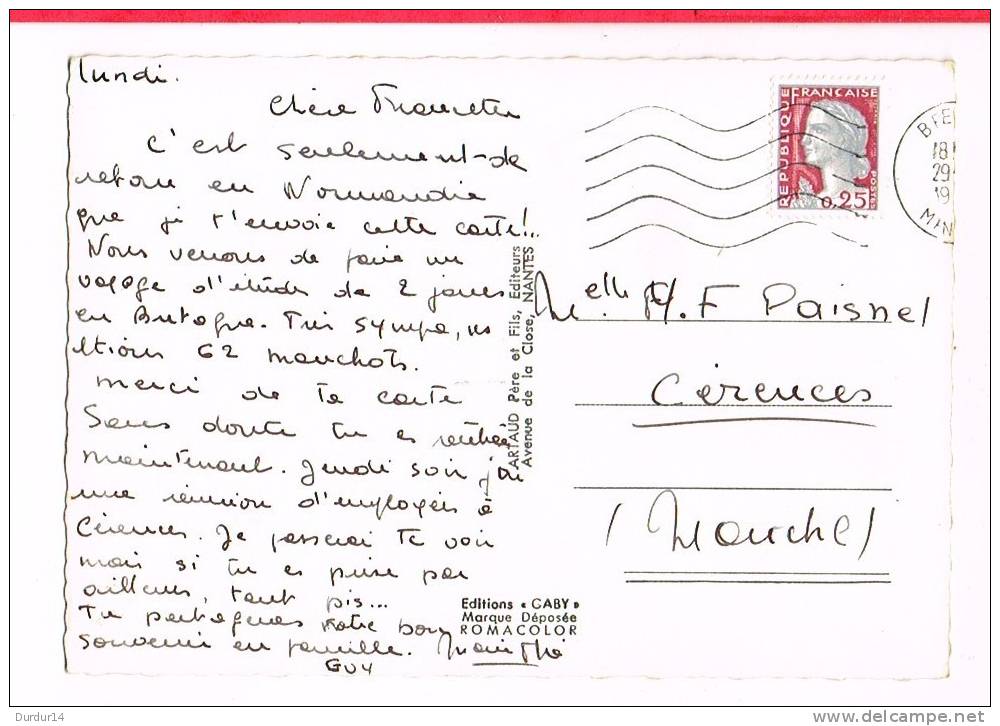 lundi.
Chère
C'est seulement de
retour en Normandie
que je t'envoie cette carte!..
Nous venons de faire un
voyage d'études de 2 jours
en Bretagne. Très sympa, ns
étions 62 manchots.
Merci de ta carte
Sans doute tu es rentrée
maintenant. Jeudi soir j'ai
une réunion d'employés à
Cérences. Je passerai te voir
mais si tu es prise par
ailleurs, tant pis...
Tu partageras notre bon
souvenir en famille.
GUY
ARTAUD Père et Fils, Editeurs
Avenue de la Close, NANTES
Editions « GABY »
Marque Déposée
ROMACOLOR
REPUBLIQUE FRANCAISE
POSTES
0,25
18
29
19
MAN
Melle F Paisnel
Cérences
(Manche)
Durdur14
www.delcampe.net